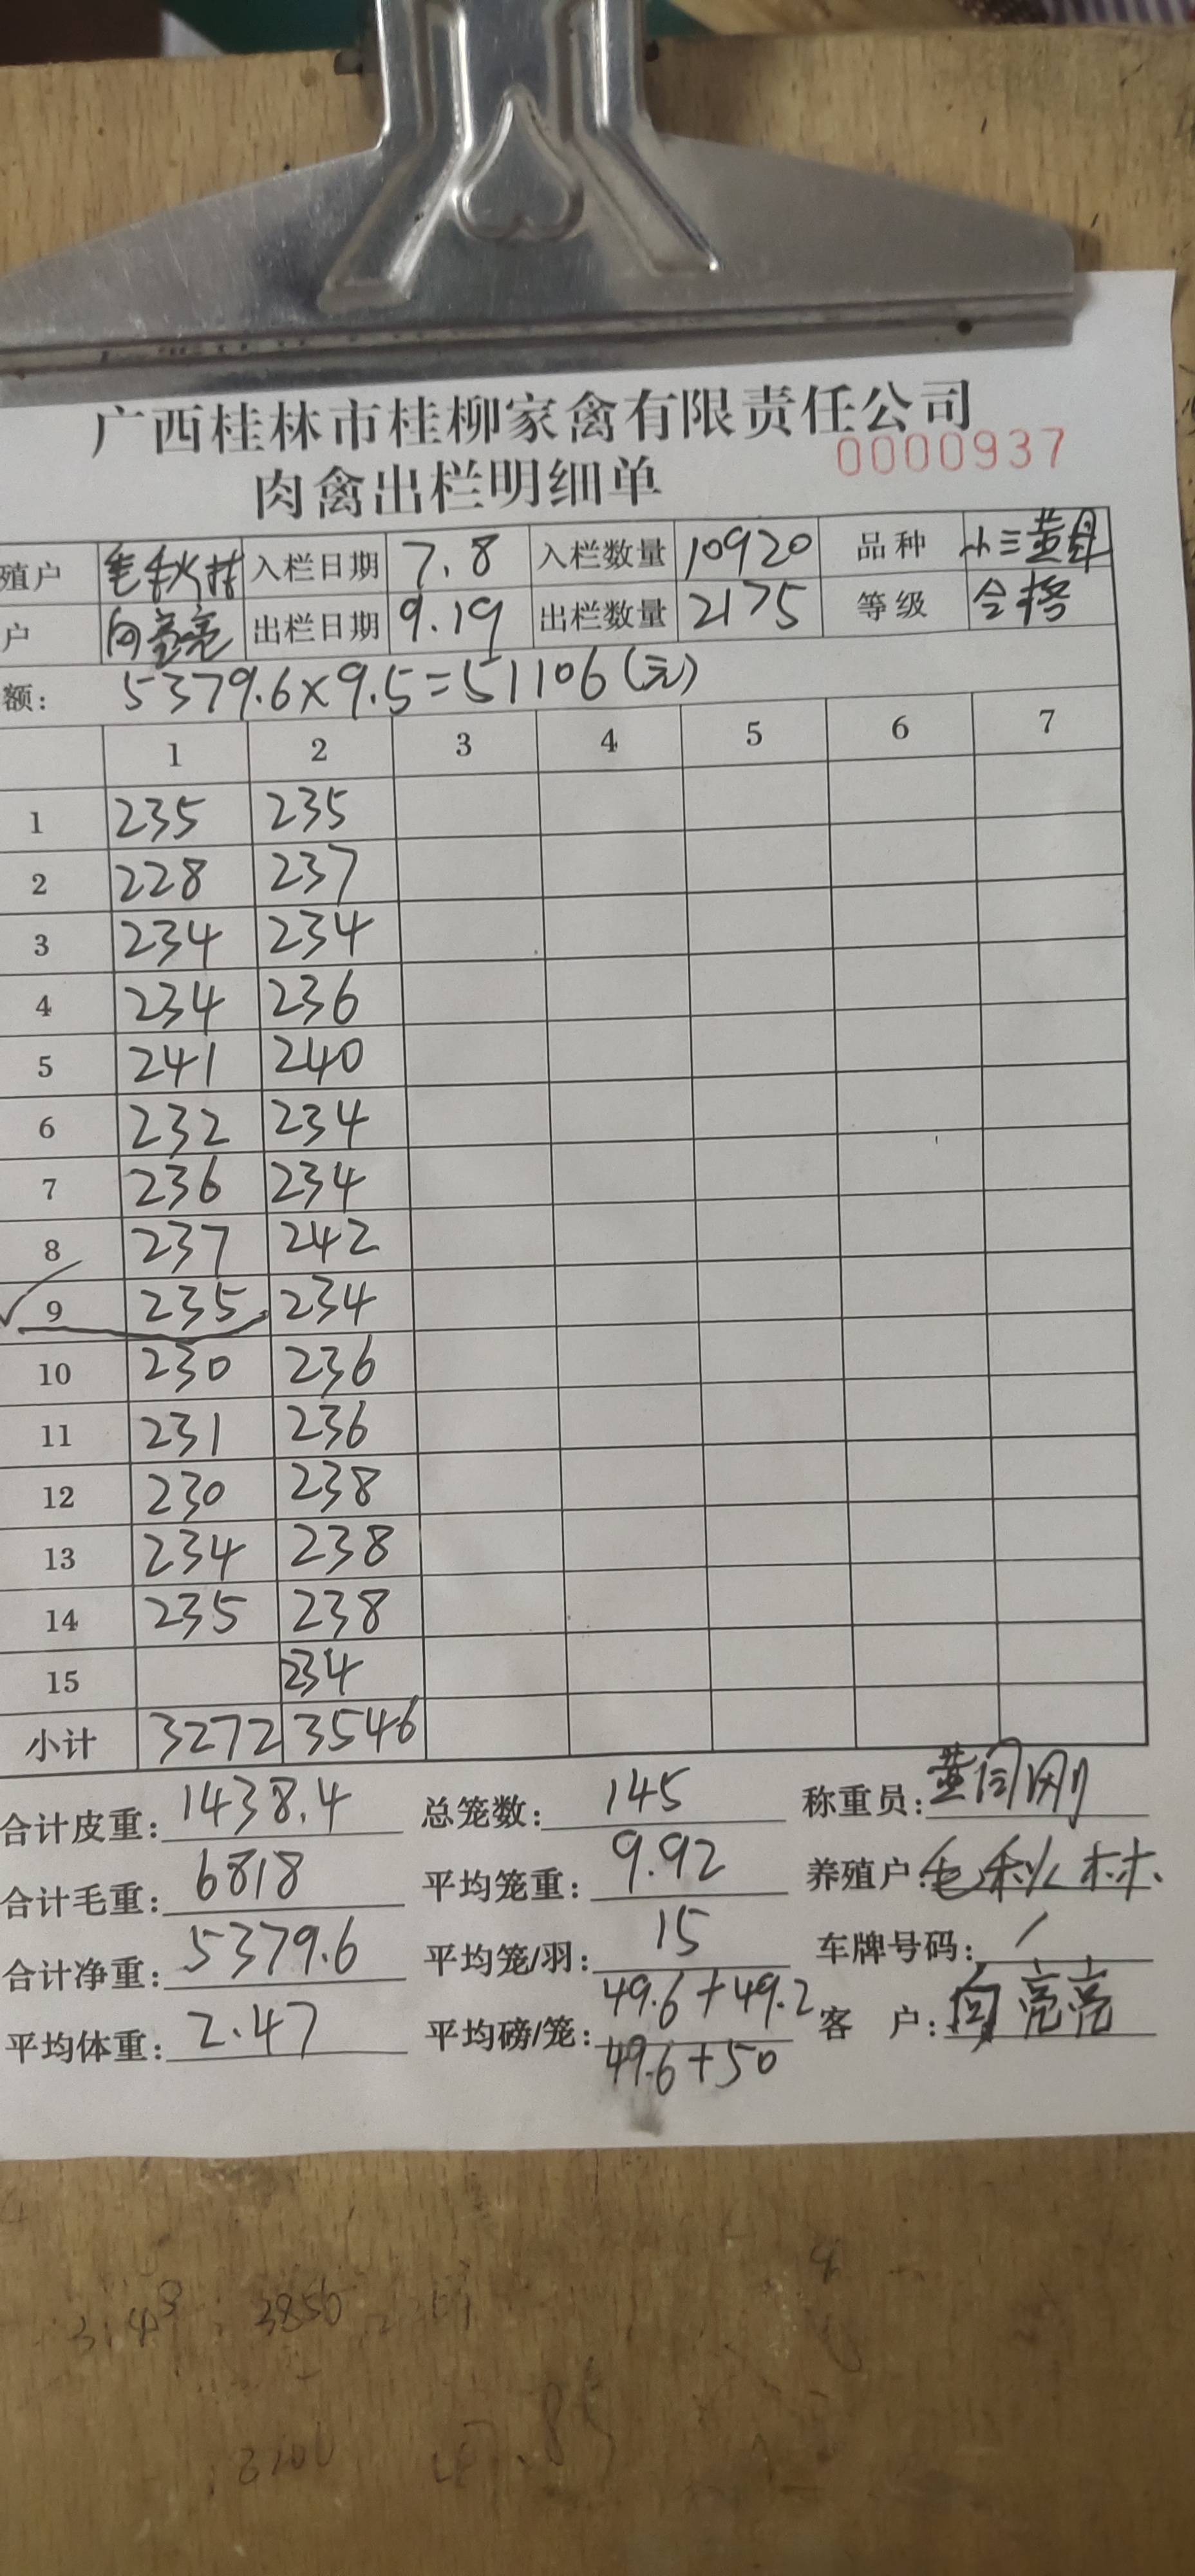 广西桂林市桂柳家禽有限责任公司
0000937
肉禽出栏明细单
殖户 毛秋林 入栏日期 7.8 入栏数量 10920 品种 小三黄母
户 向亮亮 出栏日期 9.19 出栏数量 2175 等级 合格
额: 5379.6×9.5=51106(元)
1 2 3 4 5 6 7
1 235 235
2 228 237
3 234 234
4 234 236
5 241 240
6 232 234
7 236 234
8 237 242
9 235 234
10 230 236
11 231 236
12 230 238
13 234 238
14 235 238
15 234
小计 3272 3546
合计皮重: 1438.4 总笼数: 145 称重员: 黄闯刚
合计毛重: 6818 平均笼重: 9.92 养殖户: 毛秋林
合计净重: 5379.6 平均笼/羽: 15 车牌号码: /
平均体重: 2.47 平均磅/笼: 49.6+49.2 客 户: 向亮亮
49.6+50